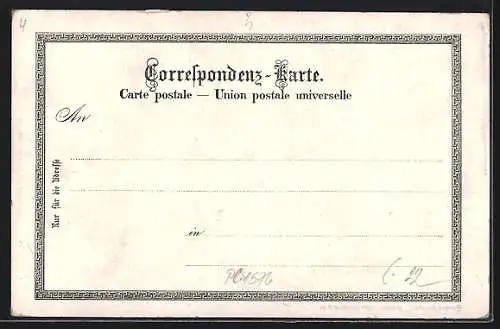 4
Correſpondenz-Karte.
Carte postale — Union postale universelle
An
Nur für die Adreſſe
in
PC1576